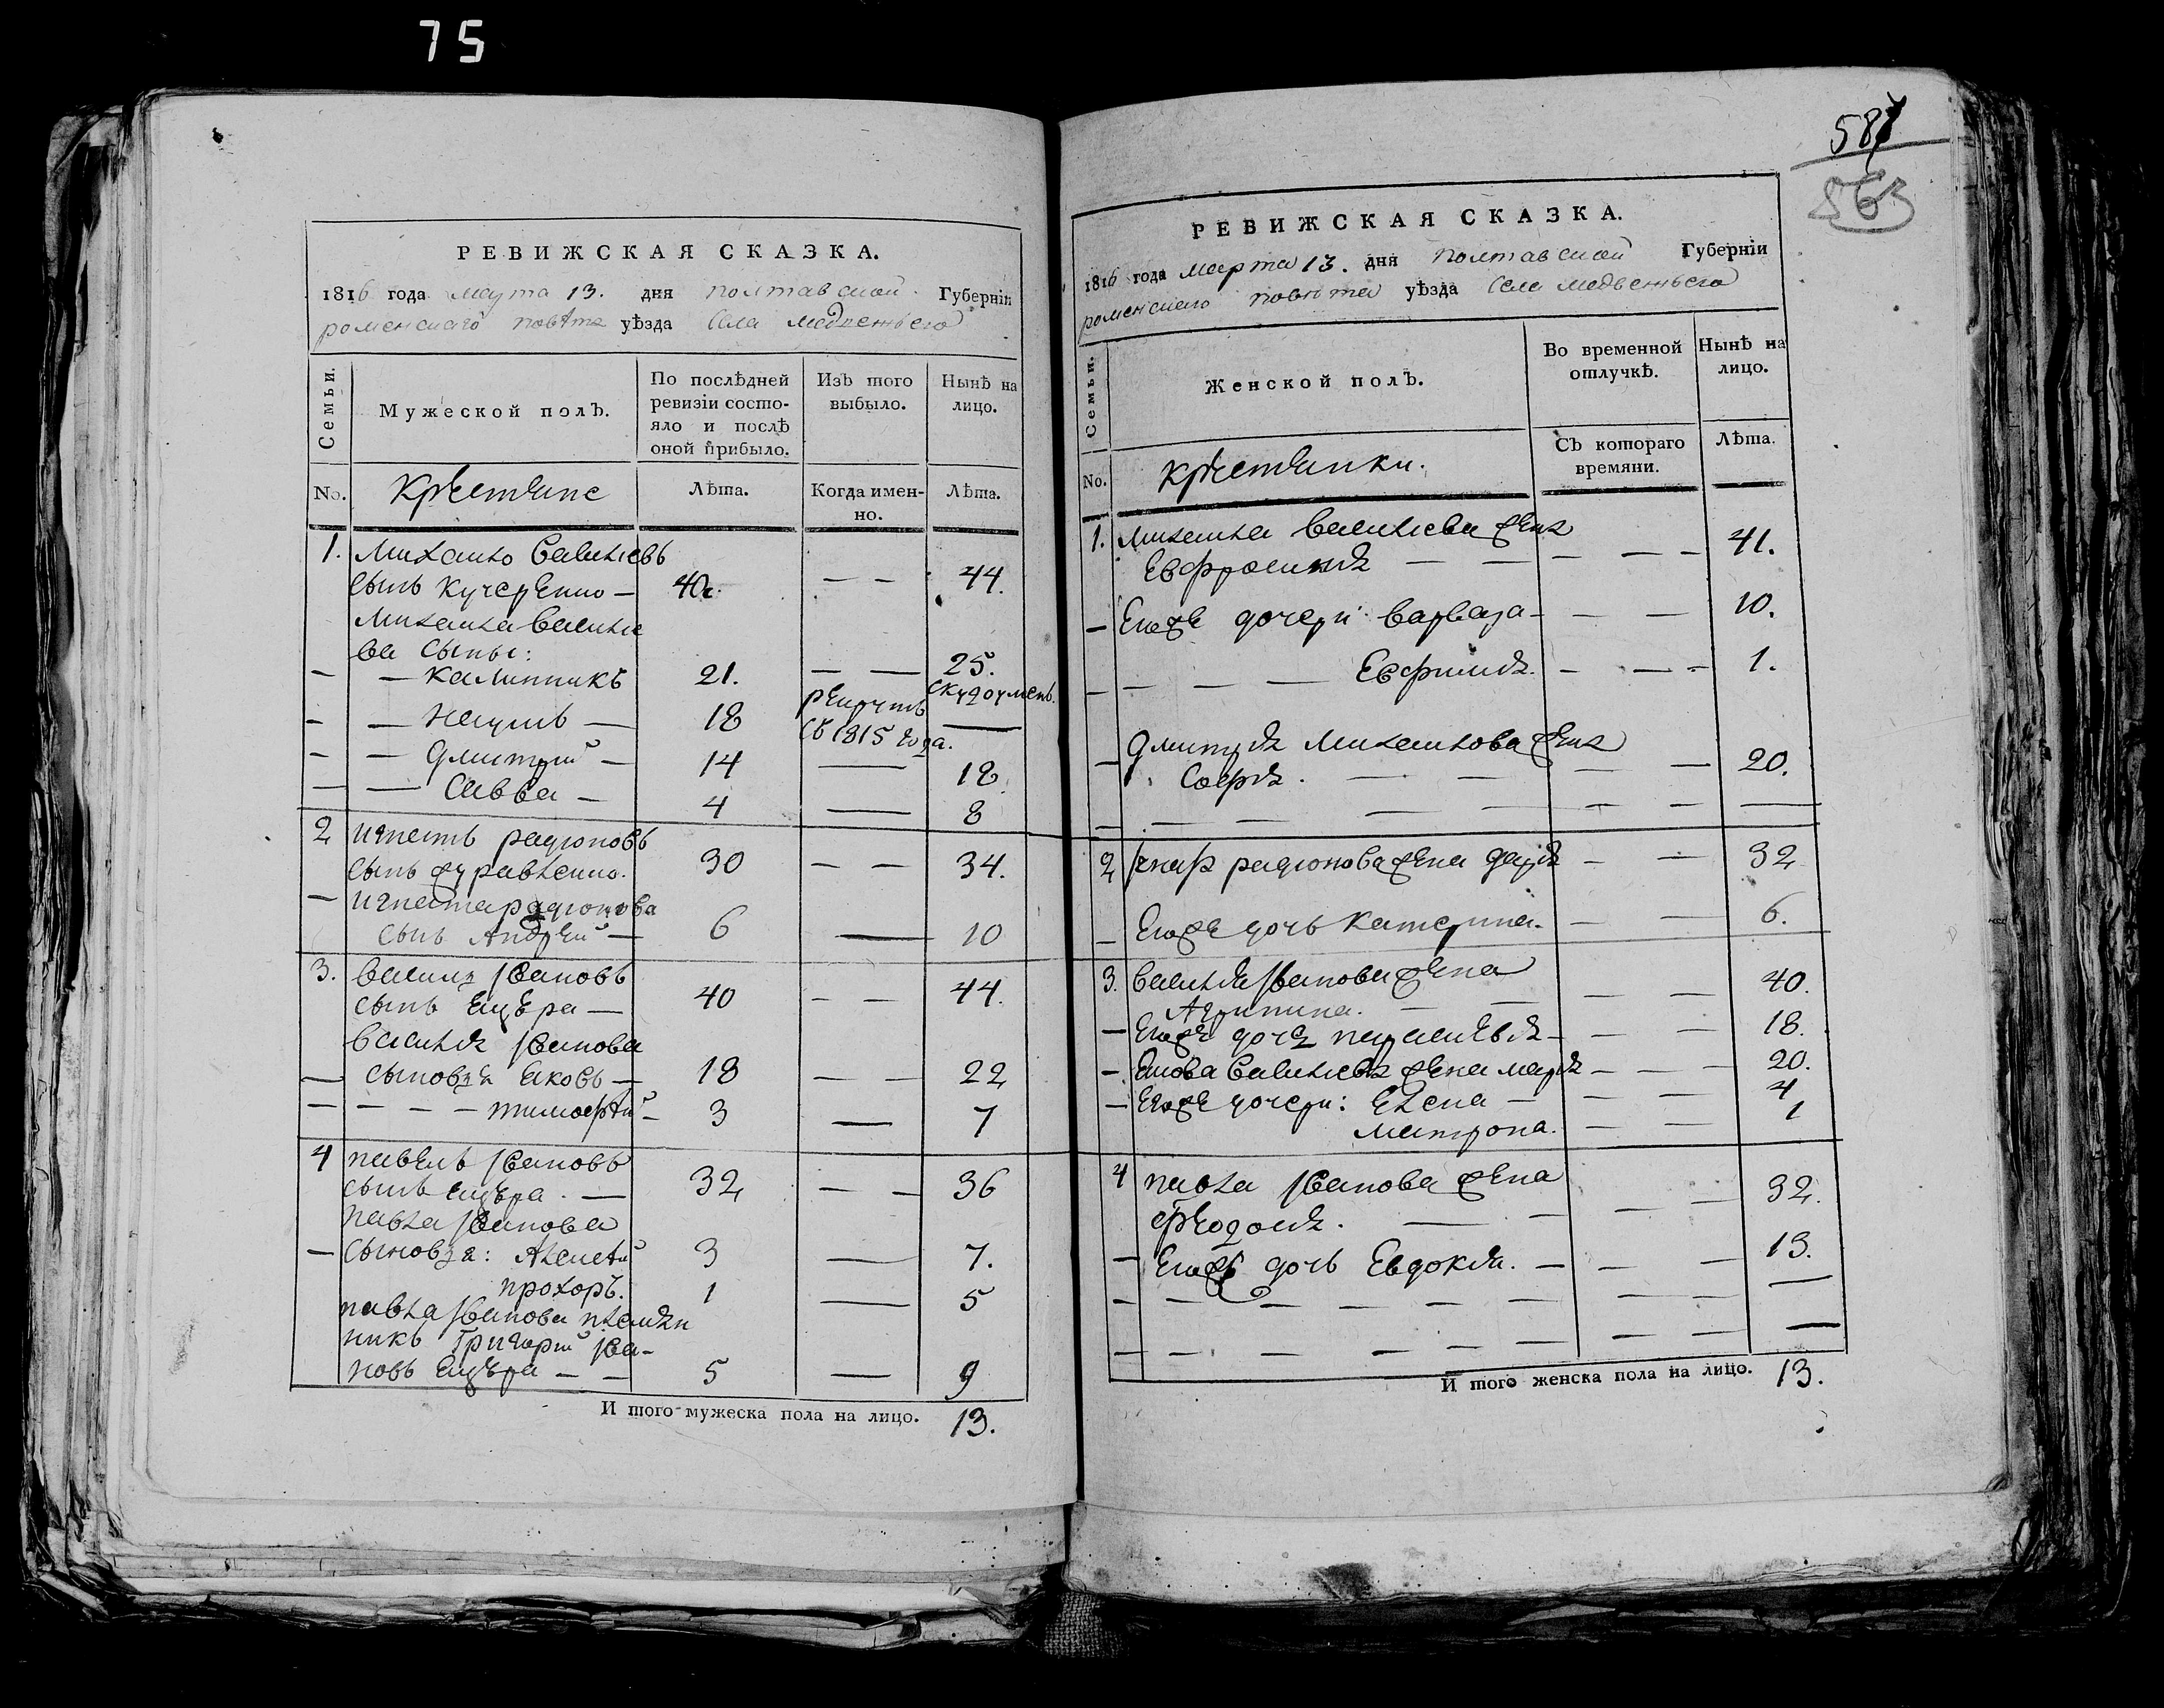 75
РЕВИЖСКАЯ СКАЗКА.
1816 года марта 13. дня полтавской Губерніи
роменскаго повѣта уѣзда села медвежьего
Семьи. Мужеской полъ. По послѣдней ревизіи состояло и послѣ оной прибыло. Изъ того выбыло. Нынѣ на лицо.
No. крестяне Лѣта. Когда именно. Лѣта.
1. михайло Васильевъ
сынъ кучеренко — 40. — — 44.
михайла василье
ва сыны:
— — калинникъ 21. — — 25. скудоуменъ.
— — наумъ — 18 рекрутъ съ 1815 года. —
— — дмитрий — 14 — 18
— — савва — 4 — 8
2 игнатъ радионовъ
сынъ журавленко. 30 — — 34.
— игната радионова
сынъ Андрей — 6 — 10
3. василий Ивановъ
сынъ — 40 — — 44.
василия Иванова
— сыновья яковъ — 18 — — 22
— — — — тимофѣй — 3 — 7
4 павелъ Ивановъ
сынъ — 32 — — 36
павла Иванова
— сыновья: Алексѣй 3 — 7.
прохоръ. 1 — 5
павла Иванова племян
никъ Григорий Ива-
новъ — — 5 — 9
И того мужеска пола на лицо. 13.
587
563
РЕВИЖСКАЯ СКАЗКА.
1816 года марта 13. дня полтавской Губерніи
роменскаго повѣта уѣзда села медвежьего
Семьи. Женской полъ. Во временной отлучкѣ. Нынѣ на лицо.
No. крестянки. Съ котораго времяни. Лѣта.
1. михайла васильева жена
Евфросиния — — — — — 41.
— Егоже дочери варвара — — — 10.
— — — — Евфимия. — — — 1.
— дмитрия михайлова жена
софия. — — — — 20.
— — — — — — — —
2 радионова жена дария — — 32
— Егоже дочь катерина. — — 6.
3. василия Иванова жена
Агрипина. — — — — 40.
— Егоже дочь парасковия — — — 18.
— якова васильева жена мария — — — 20.
— Егоже дочери: Елена — — — 4
матрона. — — 1
4 павла Иванова жена
феодосия. — — — — 32.
— Егоже дочь Евдокия. — — — 13.
— — — — — — — — —
— — — — — — — — —
И того женска пола на лицо. 13.